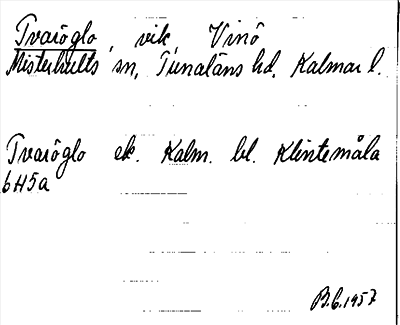 Tvaröglo, vik, Vinö
Misterhults sn, Tunaläns hd. Kalmar l.
Tvaröglo ek. Kalm. bl. Klintemåla
6H5a
B.C. 1957